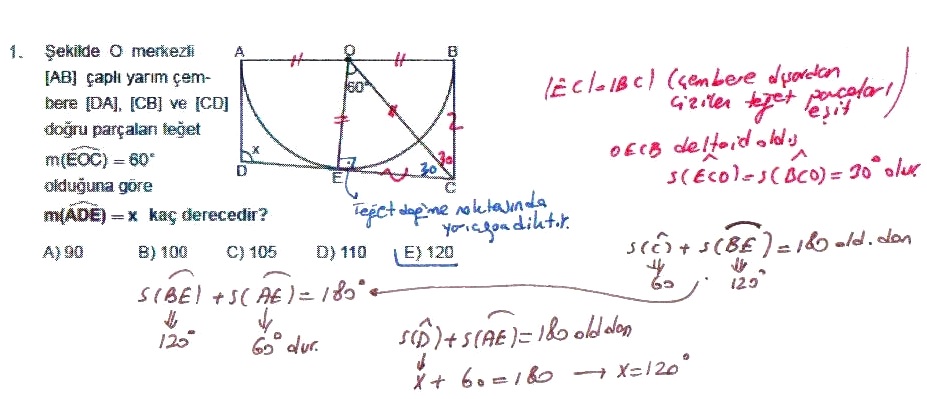 1. Şekilde O merkezli
[AB] çaplı yarım çem-
bere [DA], [CB] ve [CD]
doğru parçaları teğet
m(EOC) = 60°
olduğuna göre
m(ADE) = x kaç derecedir?
A) 90 B) 100 C) 105 D) 110 E) 120
A O B
60°
x
D E C
30 30
Teğet değme noktasında
yarıçapa diktir.
|EC|=|BC| (çembere dışardan
çizilen teğet parçaları
eşit)
OECB deltoid oldş
s(ECO)=s(BCO)=30° olur.
s(C) + s(BE)=180 old.dan
60 120°
s(BE) + s(AE)=180°
120° 60° dur.
s(D)+s(AE)=180 olddan
x + 60 = 180 → x=120°